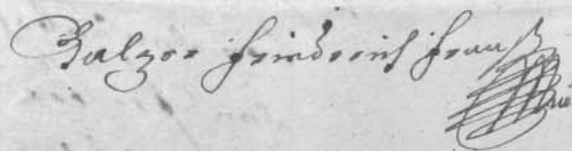 Balzer Friedrich Frantz